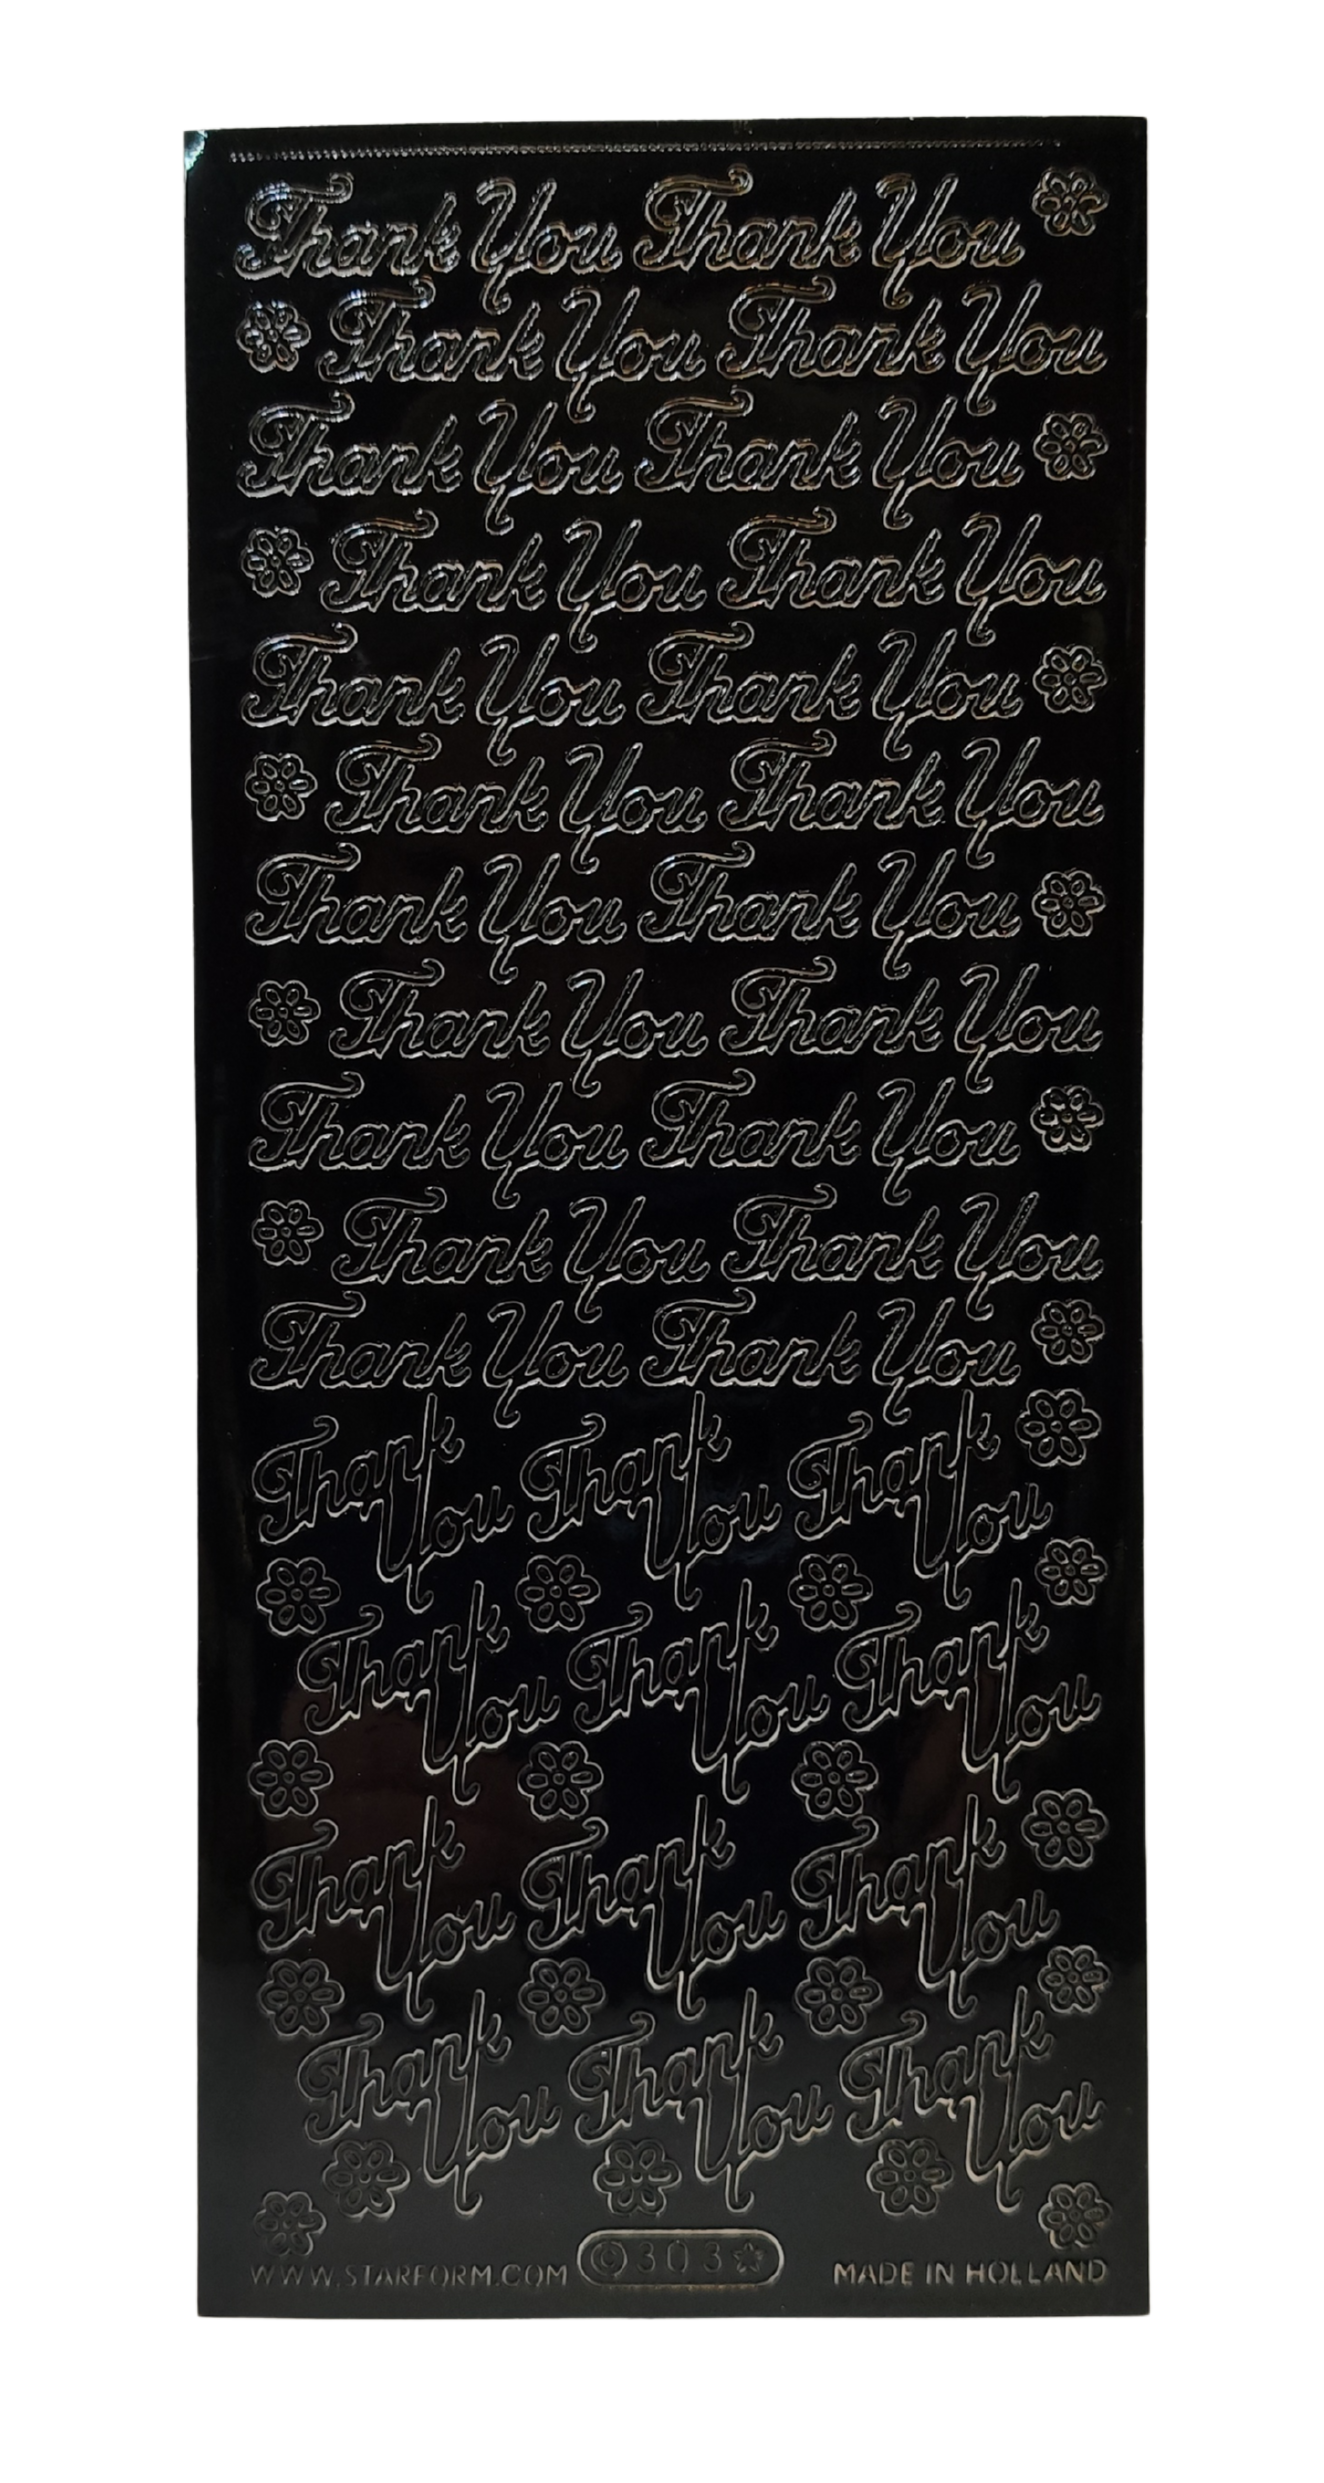 Thank You Thank You
Thank You Thank You
Thank You Thank You
Thank You Thank You
Thank You Thank You
Thank You Thank You
Thank You Thank You
Thank You Thank You
Thank You Thank You
Thank You Thank You
Thank You Thank You
Thank Thank Thank
You You You
Thank Thank Thank
You You You
Thank Thank Thank
You You You
Thank Thank Thank
You You You
WWW.STARFORM.COM © 303 MADE IN HOLLAND